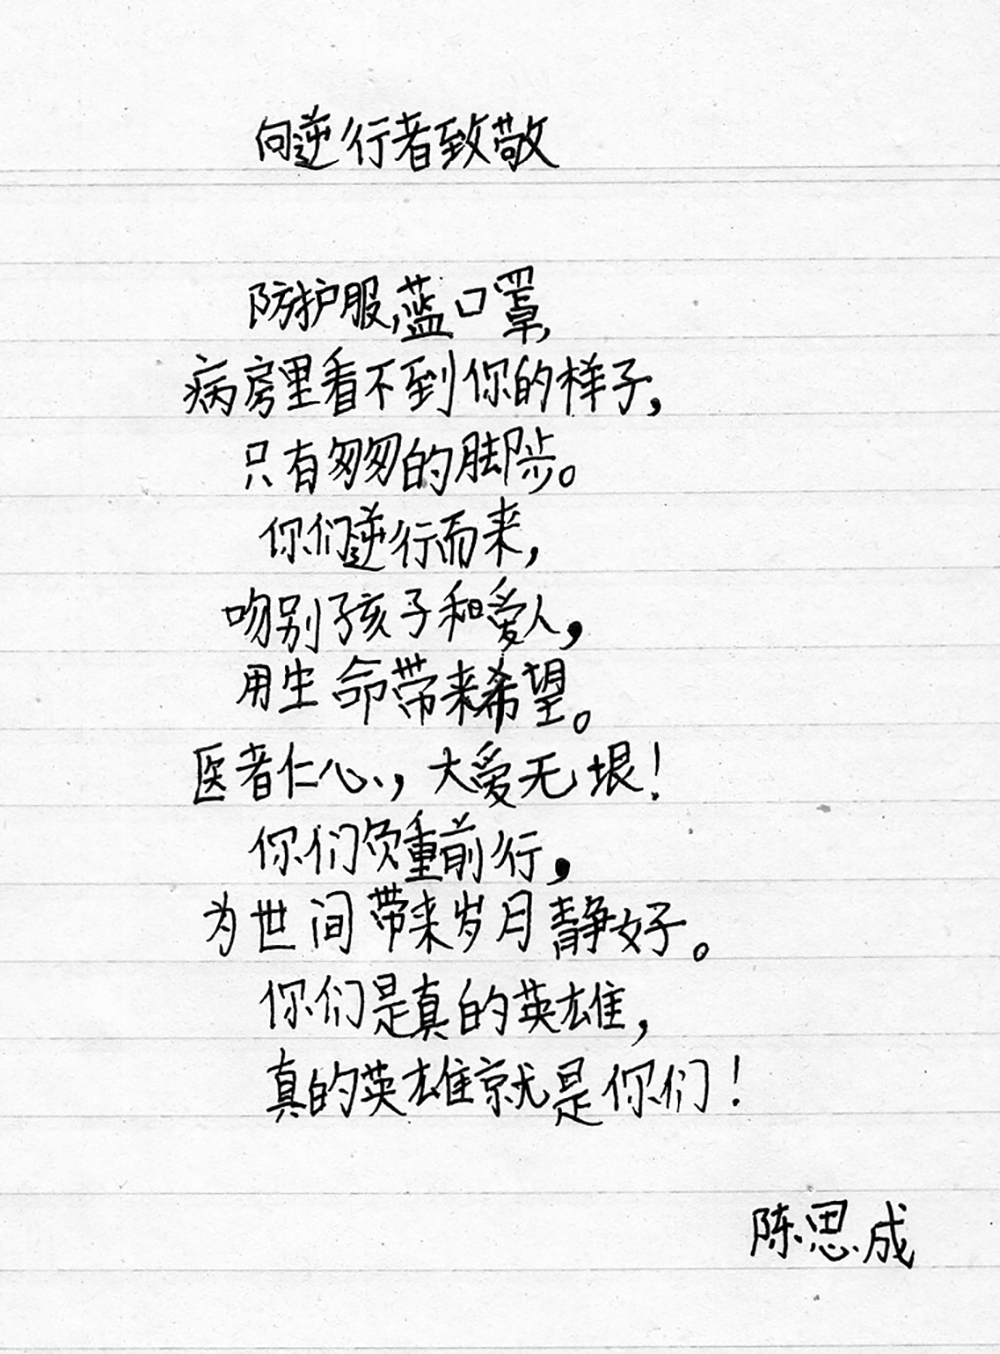 向逆行者致敬
防护服,蓝口罩,
病房里看不到你的样子,
只有匆匆的脚步。
你们逆行而来,
吻别孩子和爱人,
用生命带来希望。
医者仁心,大爱无垠!
你们负重前行,
为世间带来岁月静好。
你们是真的英雄,
真的英雄就是你们!
陈思成